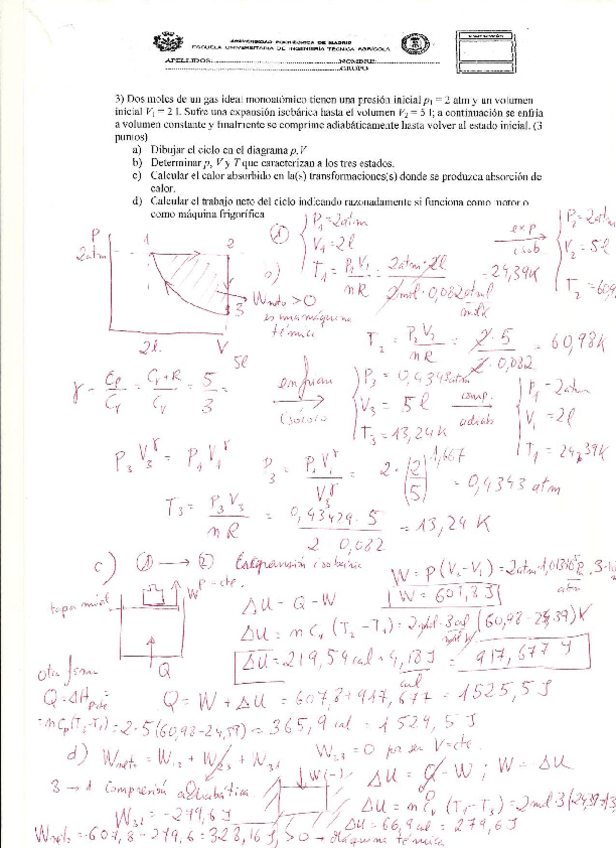 UNIVERSIDAD POLITÉCNICA DE MADRID
ESCUELA UNIVERSITARIA DE INGENIERÍA TÉCNICA AGRÍCOLA
APELLIDOS: NOMBRE:
GRUPO
3) Dos moles de un gas ideal monoatómico tienen una presión inicial p₁ = 2 atm y un volumen
inicial V₁ = 2 l. Sufre una expansión isobárica hasta el volumen V₂ = 5 l; a continuación se enfría
a volumen constante y finalmente se comprime adiabáticamente hasta volver al estado inicial. (3
puntos)
a) Dibujar el ciclo en el diagrama p,V
b) Determinar p, V y T que caracterizan a los tres estados.
c) Calcular el calor absorbido en la(s) transformaciones(s) donde se produzca absorción de
calor.
d) Calcular el trabajo neto del ciclo indicando razonadamente si funciona como motor o
como máquina frigorífica
P
2atm
1 2
3
2l. V 5l
a)
Wneto > 0
es una máquina
térmica
① P₁ = 2atm
V₁ = 2l
T₁ = P₁V₁/nR = 2atm · 2l / 2mol · 0,082 atm l/mol k = 24,39K
exp
isob
P₂ = 2atm
V₂ = 5l
T₂ = 60,9
T₂ = P₂V₂/nR = 2 · 5 / 2 · 0,082 = 60,98K
γ = Cp/Cv = Cv + R/Cv = 5/3 =
enfrian
isócoro
P₃ = 0,4343 atm
V₃ = 5l
T₃ = 13,24K
comp.
adiab
P₁ = 2atm
V₁ = 2l
T₁ = 24,39K
P₃V₃^γ = P₁V₁^γ
P₃ = P₁V₁^γ/V₃^γ = 2 · (2/5)^1,667 = 0,4343 atm
T₃ = P₃V₃/nR = 0,43429 · 5 / 2 0,082 = 13,24 K
c) ① → ② Expansión isobárica
P = cte.
W
Q
W = P(V₂ - V₁) = 2atm · 1,013·10⁵
W = 607,8 J
ΔU = Q - W
ΔU = n Cv (T₂ - T₁) = 2mol · 3 cal/mol K (60,98 - 24,39)K
ΔU = 219,54 cal · 4,18 J/cal = 917,677 J
otra forma
Q = ΔH
Q = W + ΔU = 607,8 + 917,677 = 1525,5 J
= nCp(T₂-T₁) = 2·5(60,98 - 24,39) = 365,9 cal = 1529,5 J
d) Wneto = W₁₂ + W₂₃ + W₃₁
W₂₃ = 0 por ser V = cte.
3 → 1 Compresión adiabática
W(-)
ΔU = Q - W ; W = - ΔU
ΔU = m Cv (T₁ - T₃) = 2mol · 3 (24,39-13
W₃₁ = -279,6 J
ΔU = 66,9 cal = 279,6 J
Wneto = 607,8 - 279,6 = 328,16 J, > 0 → Máquina térmica